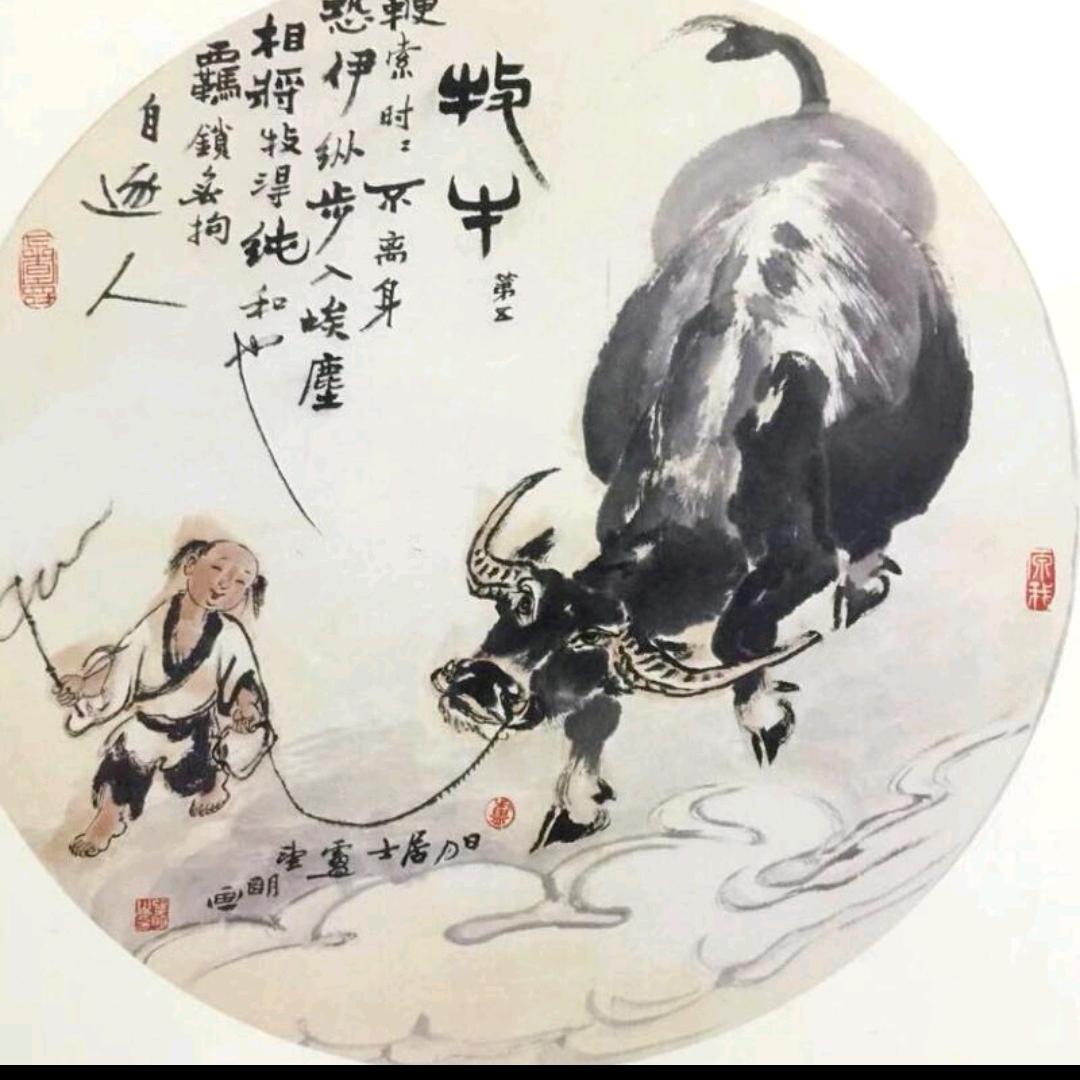 牧牛
第五
鞭索时〻不离身
恐伊纵步入埃塵
相將牧得纯和也
羈鎖無拘
自逐人
居士
明画